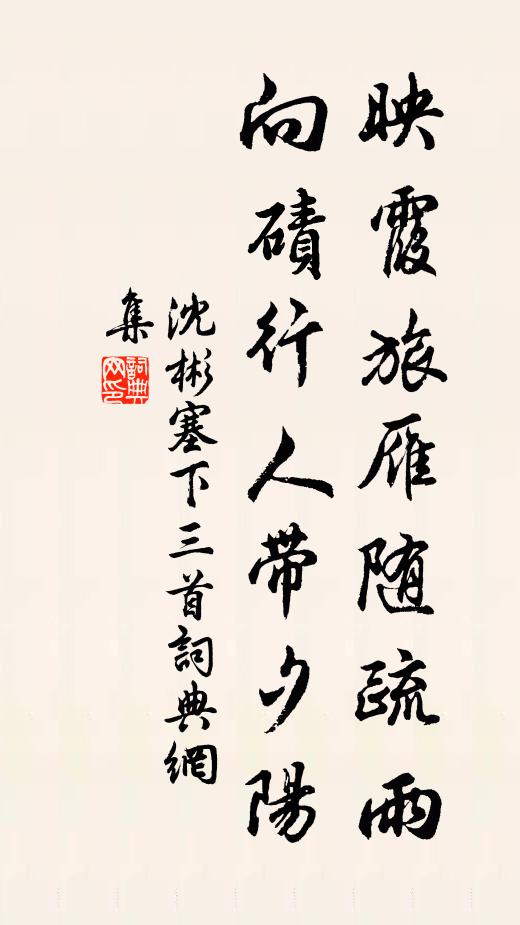 映霞旅雁随疏雨
向磧行人带夕陽
沈彬塞下三首詞典網
集
詞典
网印